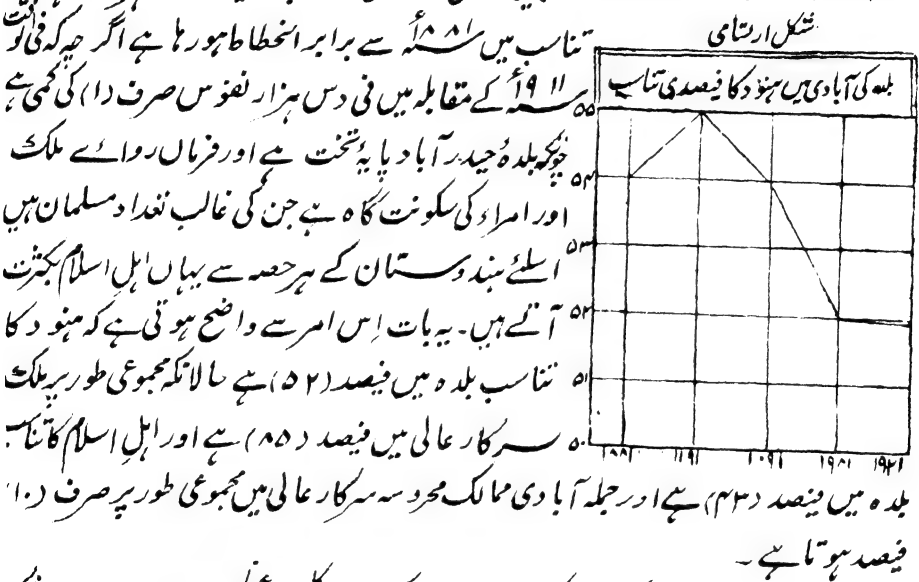 شکل ارتسامی
بلدہ کی آبادی میں ہنود کا فیصدی تناسب
۵۵
۵۴
۵۳
۵۲
۵۱
۵۰
۱۸۸۱ ۱۸۹۱ ۱۹۰۱ ۱۹۱۱ ۱۹۲۱
تناسب میں ۱۸۸۱ء سے برابر انحطاط ہو رہا ہے اگر چہ کہ فی الوقت
۱۹۱۱ء کے مقابلہ میں فی دس ہزار نفوس صرف (۱) کی کمی ہے
چونکہ بلدۂ حیدر آباد پایۂ تخت ہے اور فرماں روائے ملک
اور امراء کی سکونت گاہ ہے جن کی غالب تعداد مسلمان ہیں
اسلئے ہندوستان کے ہر حصہ سے یہاں اہل اسلام بکثرت
آتے ہیں۔ یہ بات اِس امر سے واضح ہوتی ہے کہ ہنود کا
تناسب بلدہ میں فیصد (۵۲) ہے حالانکہ مجموعی طور پر ملک
سرکار عالی میں فیصد (۸۵) ہے اور اہلِ اسلام کا تناسب
بلدہ میں فیصد (۴۳) ہے اور جملہ آبادی ممالک محروسہ سرکار عالی میں مجموعی طور پر صرف (۱۰)
فیصد ہوتا ہے۔